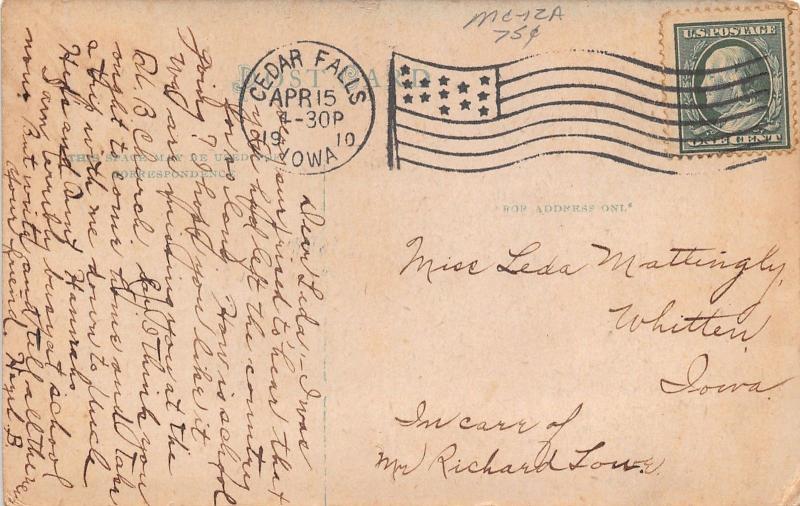 MC-12A
75¢
POST CARD
CEDAR FALLS
APR 15
4-30P
19 10
IOWA
U.S. POSTAGE
ONE CENT
THIS SPACE MAY BE USED FOR
CORRESPONDENCE
FOR ADDRESS ONLY
Dear Leda:- I was
surprised to hear that
you had left the country
How is school
going? I hope you like it
We are missing you at the
U.B. Church. I think you
ought to come home and take
a trip with me down to Uncle
and Aunt Hannah
I am awfully busy at school
now. But write and tell all the news
Your friend Hazel B.
Miss Leda Mattingly,
Whitten,
Iowa.
In care of
Mr Richard Lowe.